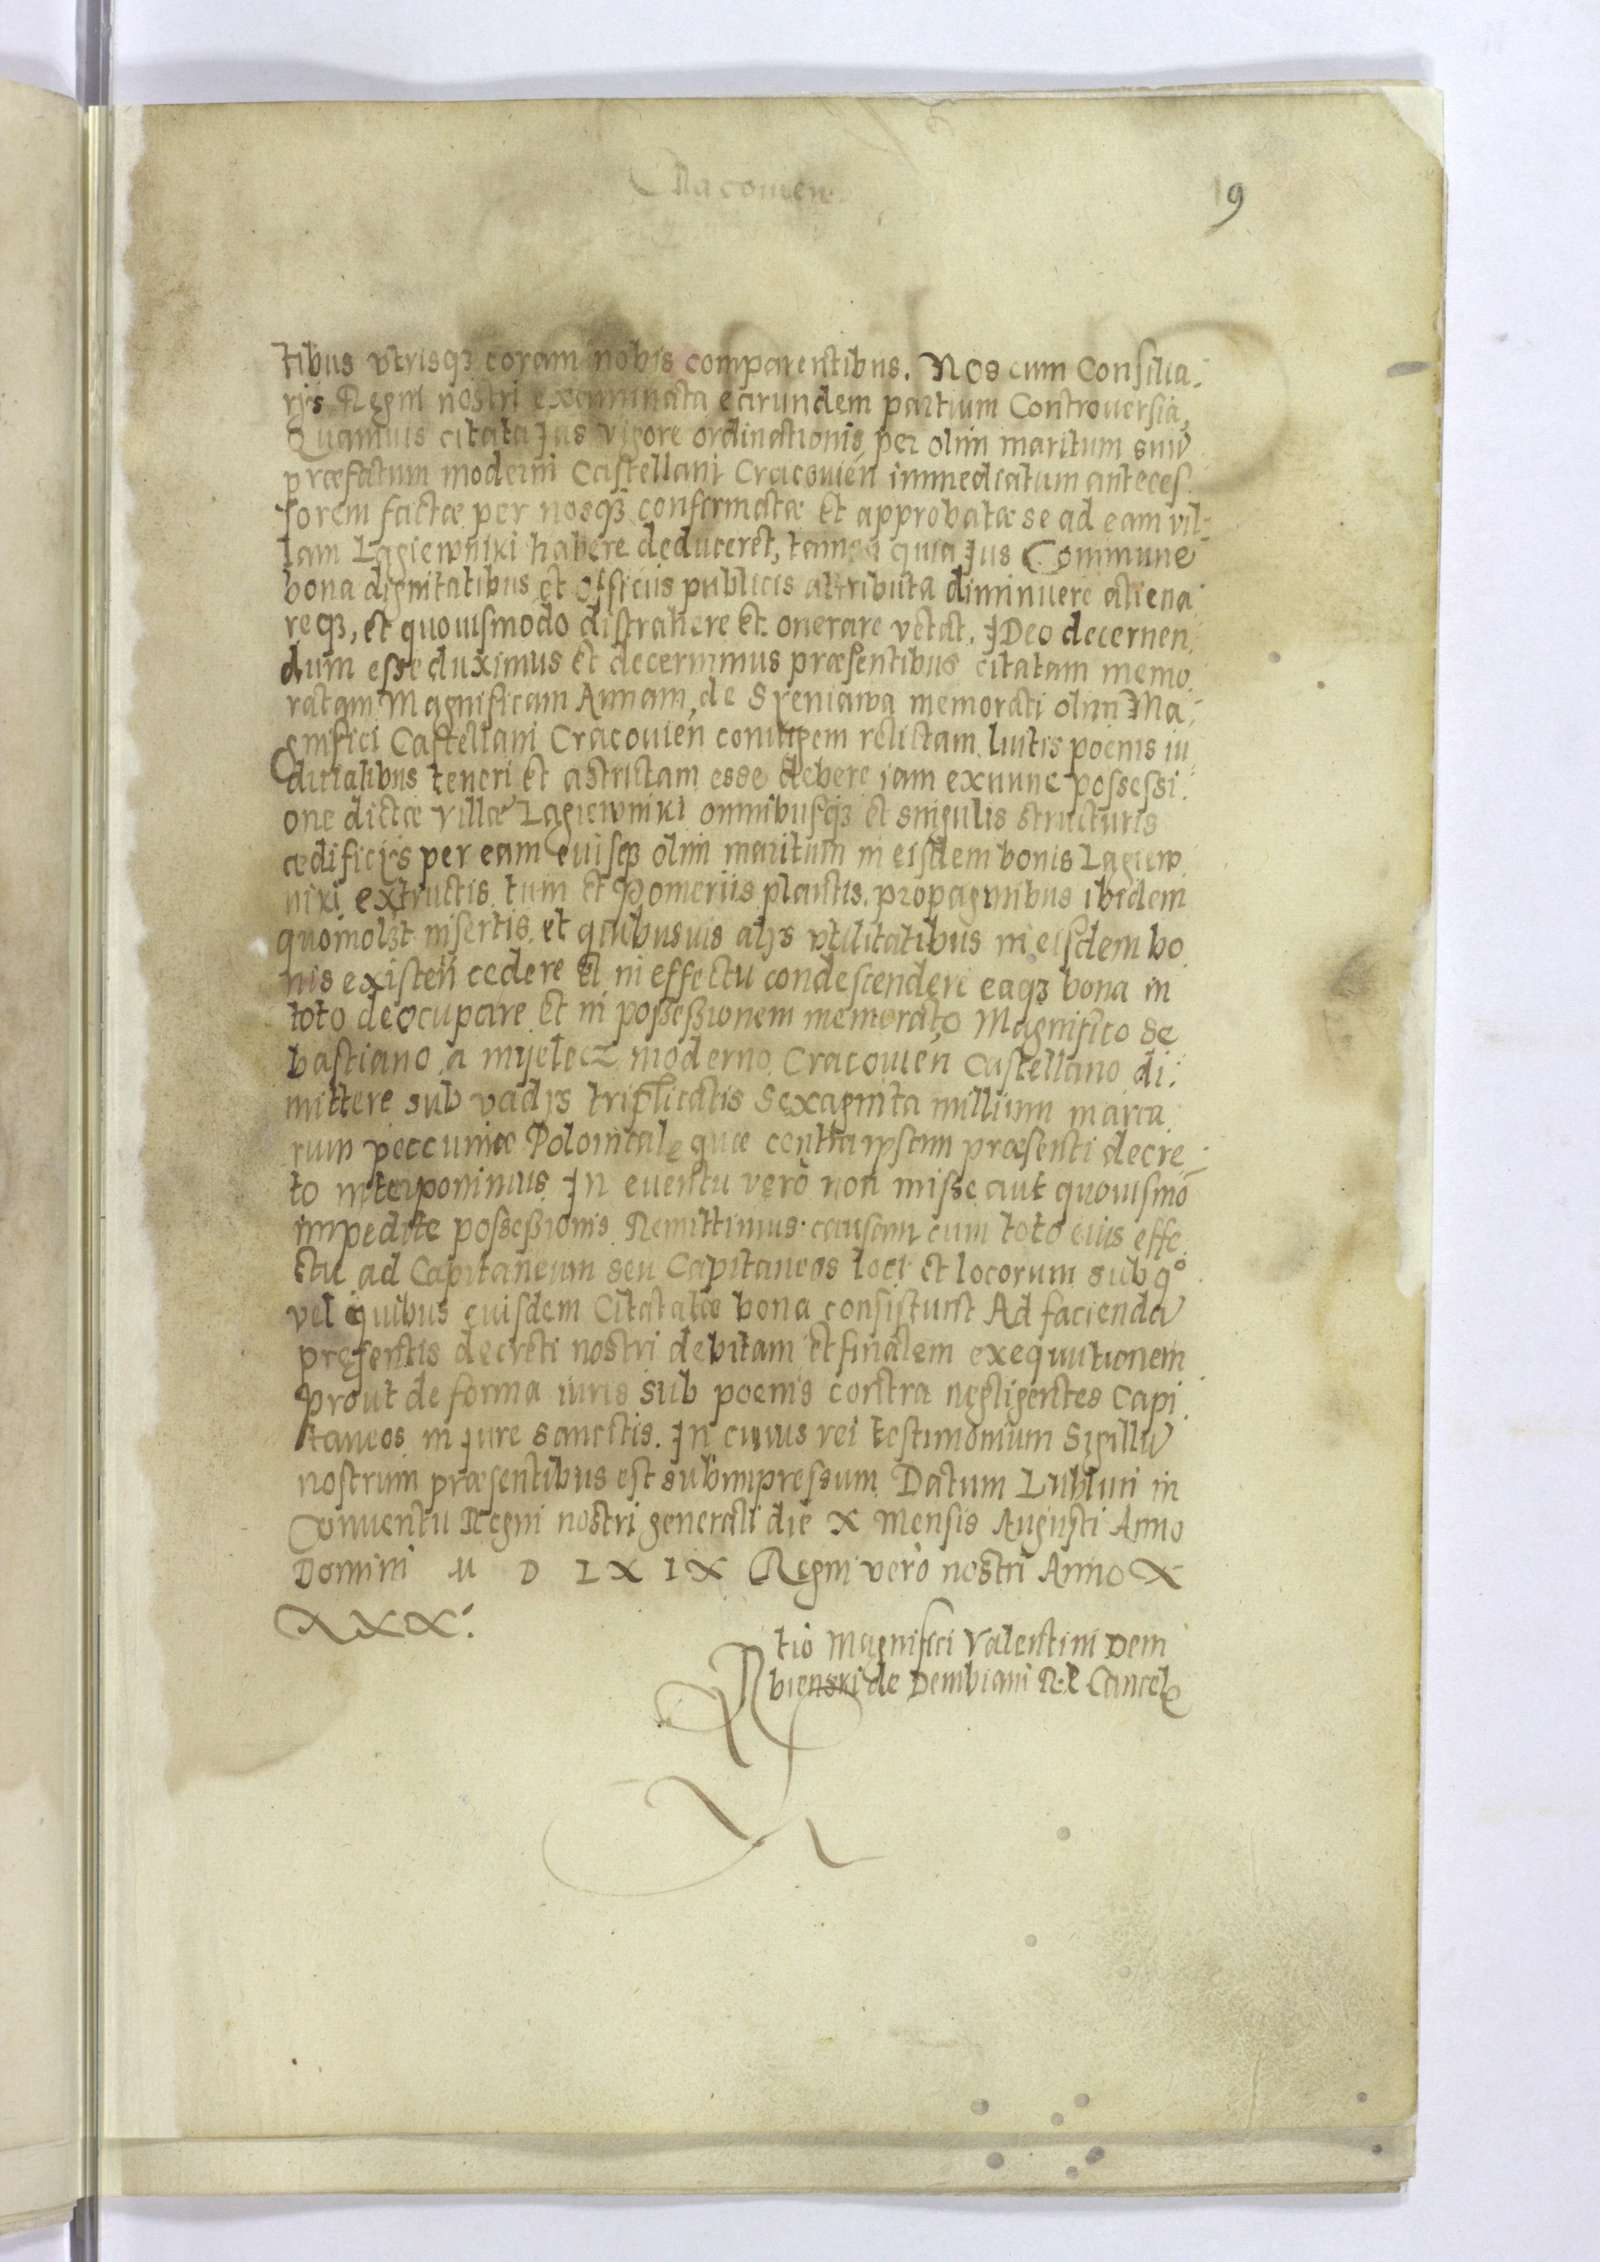 Cracouien
9
tibus vtrisqȝ coram nobis comparentibus. Nos cum Consilia:
rijs Regni nostri examinata earundem partium Controuersia,
Quamuis citata Jus vigore ordinationis per olim maritum suũ
præfatum moderni Castellani Cracouien̄ immediatum anteces:
sorem factæ per nosqȝ confirmatæ et approbatæ se ad eam vil:
lam Lagiewniki habere deduceret, tamen quia Jus Commune
bona dignitatibus et officiis publicis attributa diminuere aliena
reqȝ, et quouismodo distrahere et onerare vetat. IDeo decernen,
dum esse duximus et decernimus præsentibus citatam memo,
ratam Magnificam Annam de Sreniawa memorati olim Ma:
gnifici Castellani Cracouien̄ coniugem relictam luitis poenis iu,
ditialibus teneri et astrictam esse debere iam exnunc possessi:
one dictæ villæ Lagiewniki omnibusqȝ et singulis structuris
ædificijs per eam euisqȝ olim maritum in eisdem bonis Lagiew
niki extructis tum et Pomeriis plantis, propaginibus ibidem
quomolȝt insertis, et quibusuis alijs vtilitatibus in eisdem bo
nis existen̄ cedere et in effectu condescendere eaqȝ bona in
toto deocupare et in possessionem memorato Magnifico Se
bastiano a mijelecz moderno Cracouien̄ Castellano di:
mittere sub vadijs triplicatis Sexaginta millium marca
rum peccuniæ Polonical quæ contra ipsam præsenti decre:
to interponimus. In euentu verò non missæ aut quouismō
impeditæ possessionis Remittimus causam cum toto eius effe,
ctu ad Capitaneum seu Capitaneos loci et locorum sub qº
vel quibus euisdem Citatatæ bona consistunt Ad faciendã
pręsentis decreti nostri debitam et finalem exequutionem
prout de forma iuris sub poenis contra negligentes Capi,
taneos in Jure sanctis. In cuius rei testimonium Sigillũ
nostrum præsentibus est subimpressum Datum Lublini in
Conuentu Regni nostri generali die X Mensis Augusti Anno
Domini M D L X I X Regni verò nostri Anno X
XXX:
Rtio Magnifici Valentini Dem
bienski de Dembiani R. P. Cancel